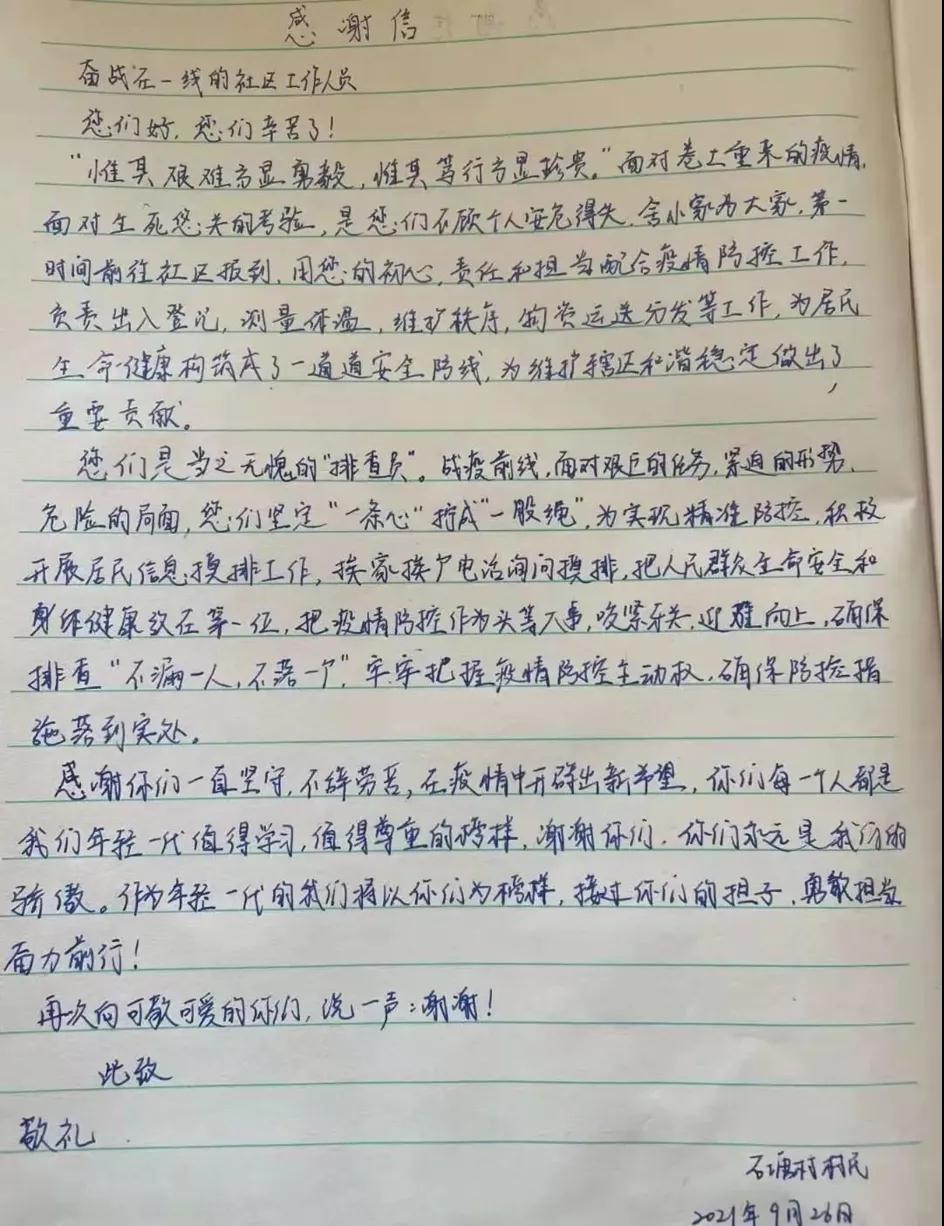 感谢信
奋战在一线的社区工作人员
您们好，您们辛苦了！
“惟其艰难方显勇毅，惟其笃行方显珍贵。”面对卷土重来的疫情，
面对生死悠关的考验，是您们不顾个人安危得失，舍小家为大家，第一
时间前往社区报到，用您的初心，责任和担当配合疫情防控工作，
负责出入登记，测量体温，维护秩序，物资运送分发等工作，为居民
生命健康构筑成了一道道安全防线，为维护辖区和谐稳定做出了
重要贡献。
您们是当之无愧的“排查员”。战疫前线，面对艰巨的任务，紧迫的形势，
危险的局面，您们坚定“一条心”拧成“一股绳”，为实现精准防控，积极
开展居民信息摸排工作，挨家挨户电话询问摸排，把人民群众生命安全和
身体健康放在第一位，把疫情防控作为头等大事，咬紧牙关，迎难向上，确保
排查“不漏一人，不落一户”，牢牢把握疫情防控主动权，确保防控措
施落到实处。
感谢你们一直坚守，不辞劳苦，在疫情中开辟出新希望，你们每一个人都是
我们年轻一代值得学习，值得尊重的榜样，谢谢你们，你们永远是我们的
骄傲。作为年轻一代的我们将以你们为榜样，接过你们的担子，勇敢担当
奋力前行！
再次向可敬可爱的你们，说一声：谢谢！
此致
敬礼
石塘村村民
2021年9月26日